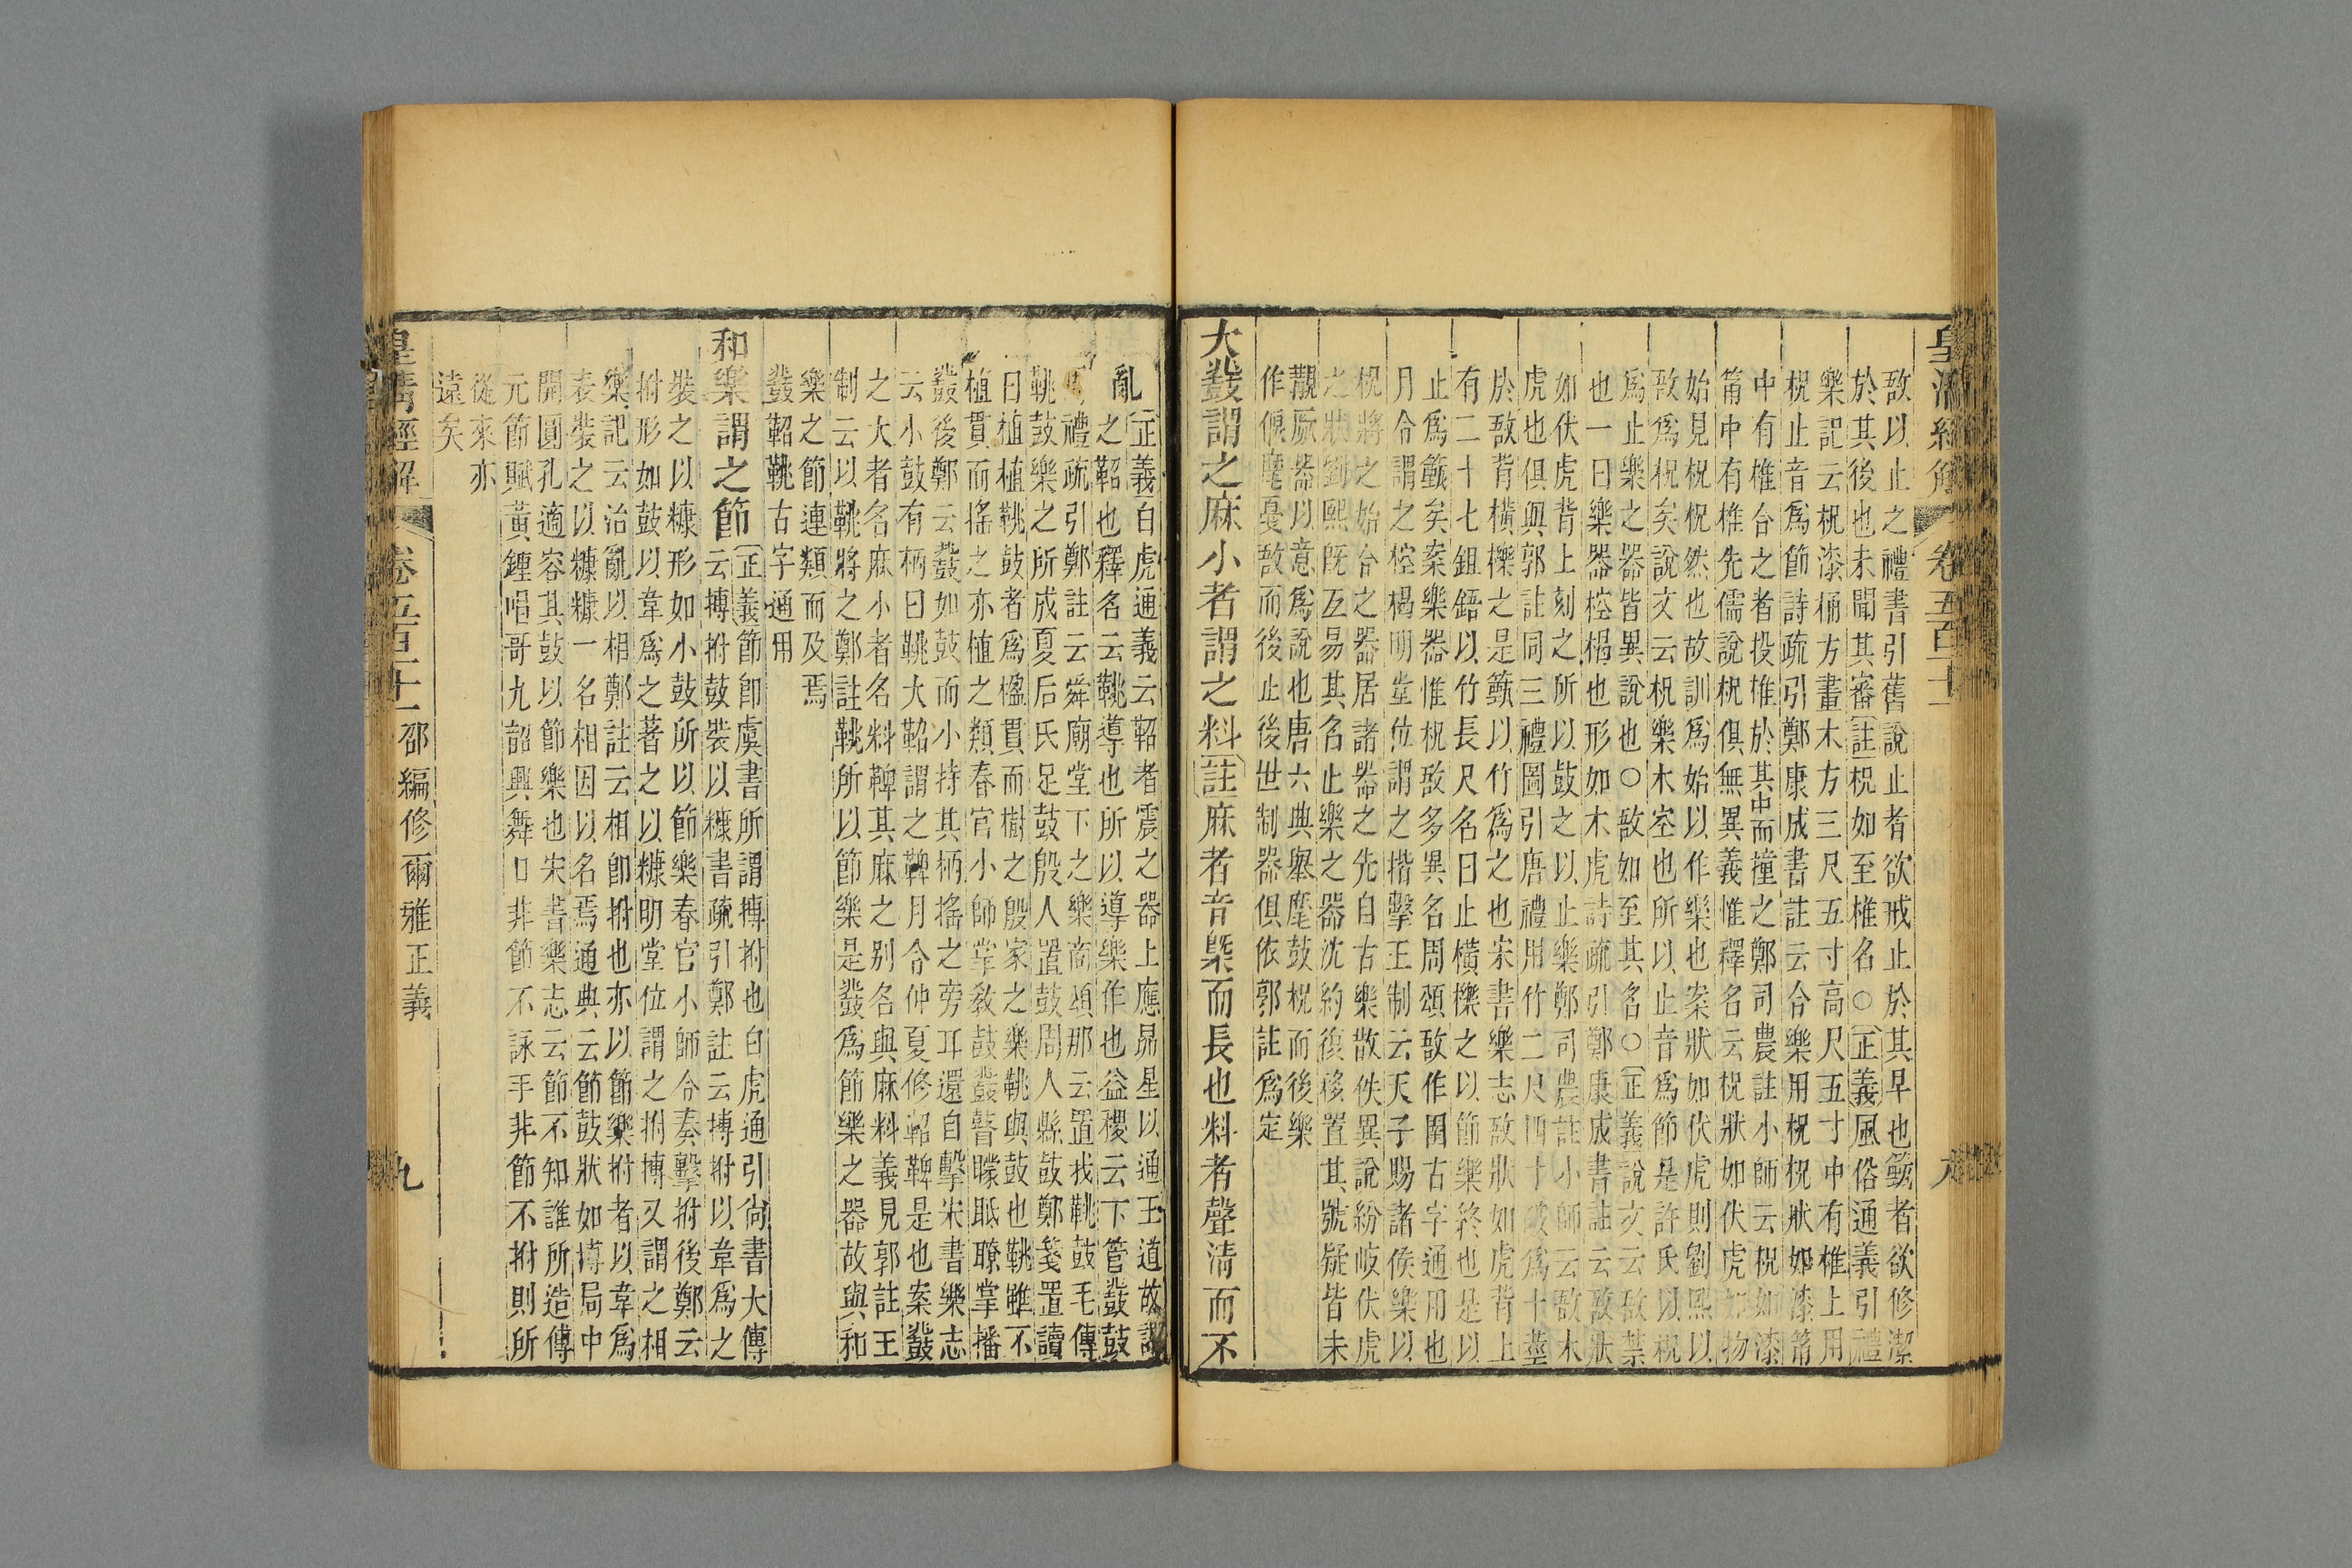 皇清經解 卷五百十一
敔以止之禮書引舊說止者欲戒止於其早也籈者欲修潔
於其後也未聞其審註柷如至椎名○正義風俗通義引禮
樂記云柷漆桶方畫木方三尺五寸高尺五寸中有椎上用
柷止音爲節詩疏引鄭康成書註云合樂用柷柷狀如漆筩
中有椎合之者投椎於其中而撞之鄭司農註小師云柷如漆
筩中有椎先儒說柷俱無異義惟釋名云柷狀如伏虎如物
始見柷柷然也故訓爲始以作樂也案狀如伏虎則劉熙以
敔爲柷矣說文云柷樂木空也所以止音爲節是許氏以柷
爲止樂之器皆異說也○敔如至其名○正義說文云敔禁
也一曰樂器椌楬也形如木虎詩疏引鄭康成書註云敔狀
如伏虎背上刻之所以鼓之以止樂鄭司農註小師云敔木
虎也俱與郭註同三禮圖引唐禮用竹二尺四寸破爲十莖
於敔背橫櫟之是籈以竹爲之也宋書樂志敔狀如虎背上
有二十七鉏鋙以竹長尺名曰止橫櫟之以節樂終也是以
止爲籈矣案樂器惟柷敔多異名周頌敔作圉古字通用也
月令謂之椌楬明堂位謂之揩擊王制云天子賜諸侯樂以
柷將之始合之器居諸器之先自古樂散佚異說紛岐伏虎
之狀劉熙旣互易其名止樂之器沈約復移置其號疑皆未
覩厥器以意爲說也唐六典舉麾鼓柷而後樂
作偃麾戛敔而後止後世制器俱依郭註爲定
大鼗謂之麻小者謂之料註麻者音槩而長也料者聲清而不
亂正義白虎通義云鞀者震之器上應昴星以通王道故謂
之鞀也釋名云鞉導也所以導樂作也益稷云下管鼗鼓
禮疏引鄭註云舜廟堂下之樂商頌那云置我鞉鼓毛傳
鞉鼓樂之所成夏后氏足鼓殷人置鼓周人縣鼓鄭箋置讀
曰植植鞉鼓者爲楹貫而樹之殷家之樂鞉與鼓也鞉雖不
植貫而搖之亦植之類春官小師掌敎鼓鼗瞽矇眡瞭掌播
鼗後鄭云鼗如鼓而小持其柄搖之旁耳還自擊宋書樂志
云小鼓有柄曰鞉大鞀謂之鞞月令仲夏修鞀鞞是也案鼗
之大者名麻小者名料鞞其麻之別名與麻料義見郭註王
制云以鞉將之鄭註鞉所以節樂是鼗爲節樂之器故與和
樂之節連類而及焉
鼗鞀鞉古字通用
和樂謂之節正義節卽虞書所謂搏拊也白虎通引尙書大傳
云搏拊鼓裝以糠書疏引鄭註云搏拊以韋爲之
裝之以糠形如小鼓所以節樂春官小師令奏擊拊後鄭云
拊形如鼓以韋爲之著之以糠明堂位謂之拊搏又謂之相
樂記云治亂以相鄭註云相卽拊也亦以節樂拊者以韋爲
表裝之以糠糠一名相因以名焉通典云節鼓狀如博局中
開圓孔適容其鼓以節樂也宋書樂志云節不知誰所造傅
元節賦黃鍾唱哥九韶興舞口非節不詠手非節不拊則所
從來亦
遠矣
皇清經解 卷五百十一 邵編修爾雅正義 九